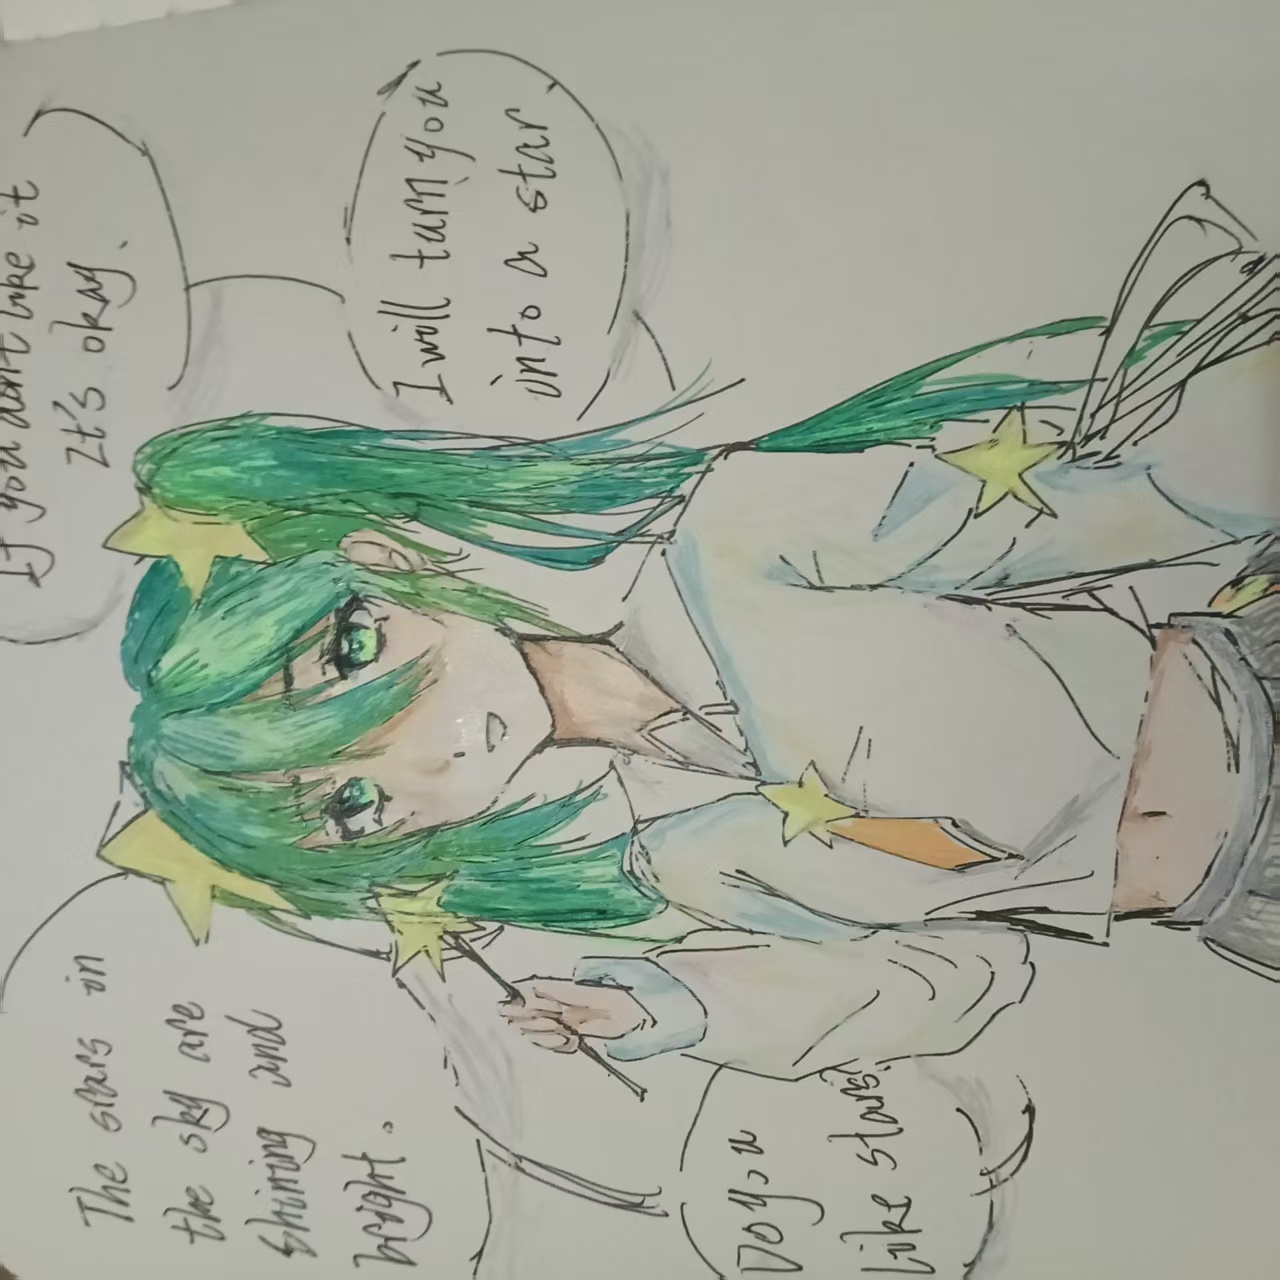 The stars in
the sky are
shining and
bright.
Do you
Like stars?
If you don't like it
It's okay.
I will turn you
into a star